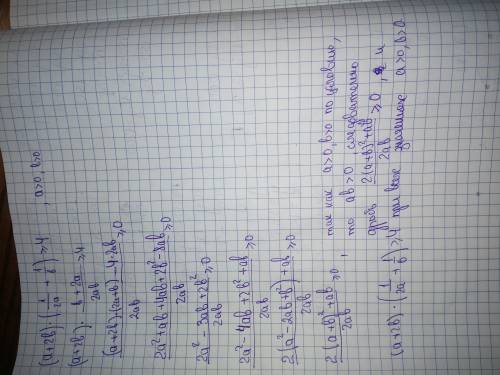 (a+2b)·(1/2a + 1/b) ≥ 4 , a>0, b>0
(a+2b) · (b+2a)/2ab ≥ 4
((a+2b)(2a+b) - 4·2ab)/2ab ≥ 0
(2a²+ab+4ab+2b²-8ab)/2ab ≥ 0
(2a²-3ab+2b²)/2ab ≥ 0
(2a²-4ab+2b²+ab)/2ab ≥ 0
(2(a²-2ab+b²)+ab)/2ab ≥ 0
(2(a+b)²+ab)/2ab ≥ 0 , так как a>0, b>0 по условию,
то ab>0, следовательно
дробь (2(a+b)²+ab)/2ab ≥ 0, и
(a+2b)·(1/2a + 1/b) ≥ 4 при всех значениях a>0, b>0